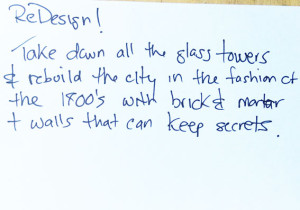 ReDesign!
Take down all the glass towers
& rebuild the city in the fashion of
the 1800's with brick & mortar
+ walls that can keep secrets.